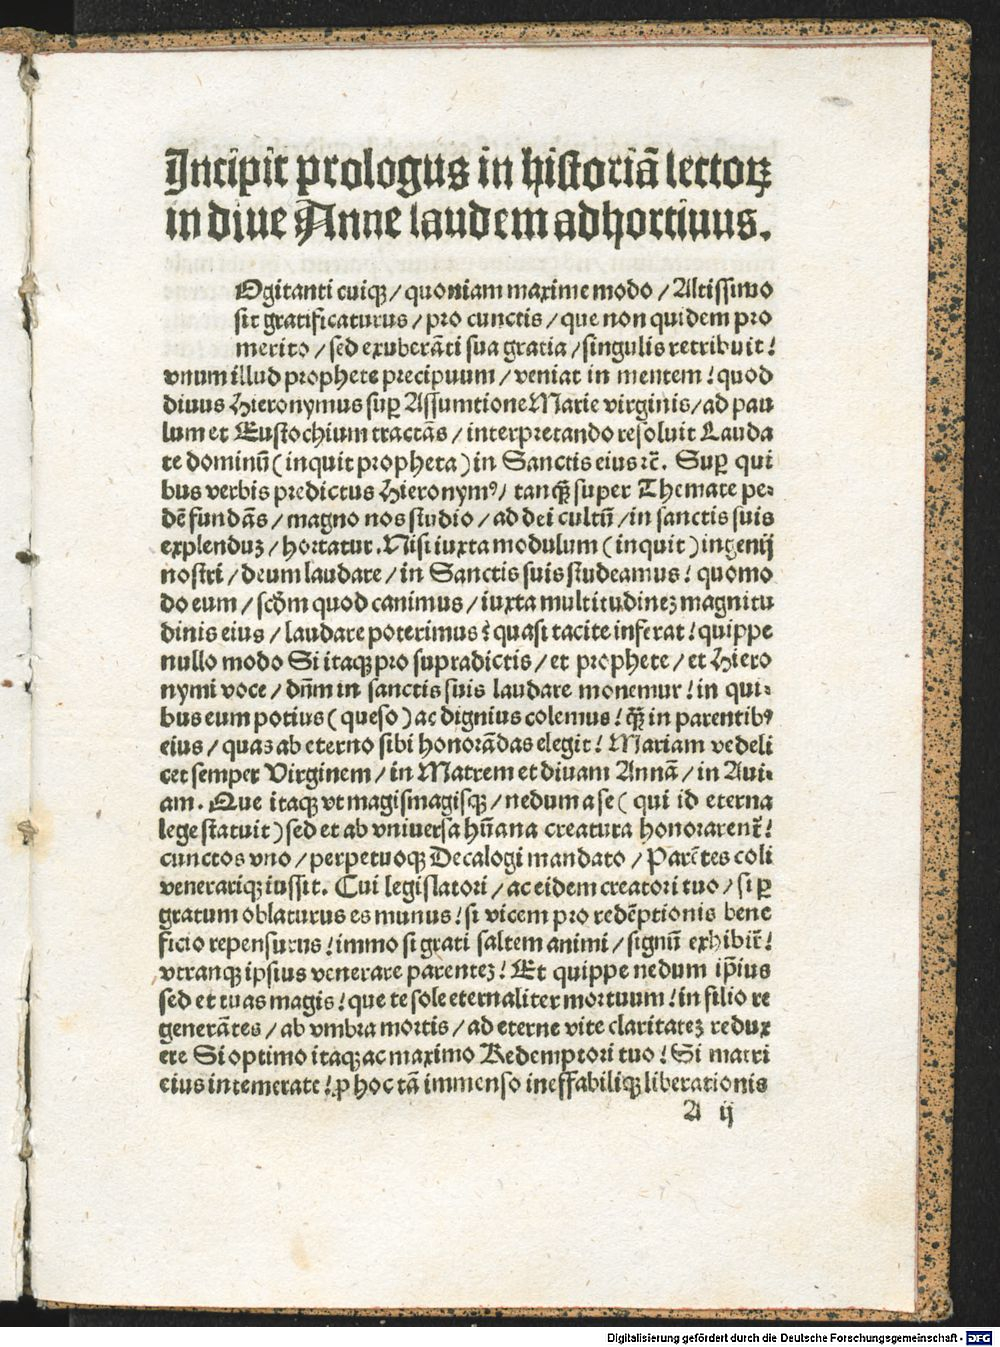 Incipit prologus in historiā lectoꝝ
in diue Anne laudem adhortiuus.
Ogitanti cuiqꝫ / quoniam maxime modo / Altissimo
sit gratificaturus / pro cunctis / que non quidem pro
merito / sed exuberāti sua gratia / singulis retribuit!
vnum illud prophete precipuum / veniat in mentem! quod
diuus Hieronymus suꝑ Assumtione Marie virginis / ad pau
lum et Eustochium tractās / interpretando resoluit Lauda
te dominū ( inquit propheta ) in Sanctis eius ꝛc̄. Suꝑ qui
bus verbis predictus Hieronymꝰ / tanqꝫ̄ super Themate pe⸗
dē fundās / magno nos studio / ad dei cultū / in sanctis suis
explenduꝫ / hortatur. Nisi iuxta modulum ( inquit ) ingenij
nostri / deum laudare / in Sanctis suis studeamus! quomo
do eum / scd̄m quod canimus / iuxta multitudineꝫ magnitu
dinis eius / laudare poterimus? quasi tacite inferat! quippe
nullo modo Si itaqꝫ pro supradictis / et prophete / et Hiero
nymi voce / dn̄m in sanctis suis laudare monemur! in qui⸗
bus eum potius ( queso ) ac dignius colemus! qꝫ̄ in parentibꝰ
eius / quas ab eterno sibi honorādas elegit! Mariam vedeli
cet semper Virginem / in Matrem et diuam Annā / in Aui⸗
am. Que itaqꝫ vt magismagisqꝫ / nedum a se ( qui id eterna
lege statuit ) sed et ab vniuersa hūana creatura honorarent᷑!
cunctos vno / perpetuoqꝫ Decalogi mandato / Parētes coli
venerariqꝫ iussit. Cui legislatori / ac eidem creatori tuo / si ꝑ
gratum oblaturus es munus! si vicem pro redēptionis bene
ficio repensurus! immo si grati saltem animi / signū exhibit᷑!
vtranqꝫ ipsius venerare parenteꝫ! Et quippe nedum ip̄ius
sed et tuas magis! que te sole eternaliter mortuum! in filio re
generātes / ab vmbra mortis / ad eterne vite claritateꝫ redux
ere Si optimo itaqꝫ ac maximo Redemptori tuo! Si matri
eius intemerate! ꝓ hoc tā immenso ineffabiliqꝫ liberationis
A ij
Digitalisierung gefördert durch die Deutsche Forschungsgemeinschaft - DFG